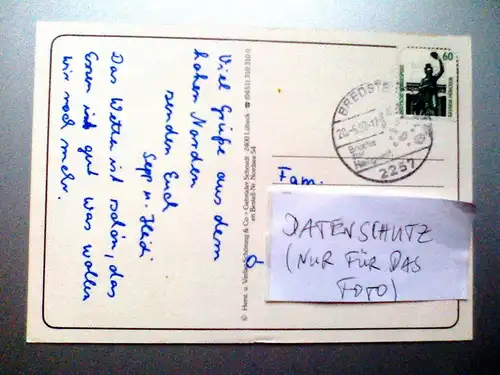 Viel Grüße aus dem
hohen Norden
senden Euch
Sepp u. Heidi
Das Wetter ist schön, das
Essen ist gut was wollen
wir noch mehr.
© Herst. u. Verlag Schöning & Co + Gebrüder Schmidt · 2400 Lübeck · ☎ (0451) 310 310 0
Bestell-Nr. Nordsee 54
60
DEUTSCHE BUNDESPOST
BAVARIA MÜNCHEN
BREDSTE
2257
Fam.
DATENSCHUTZ
(NUR FÜR DAS
FOTO)